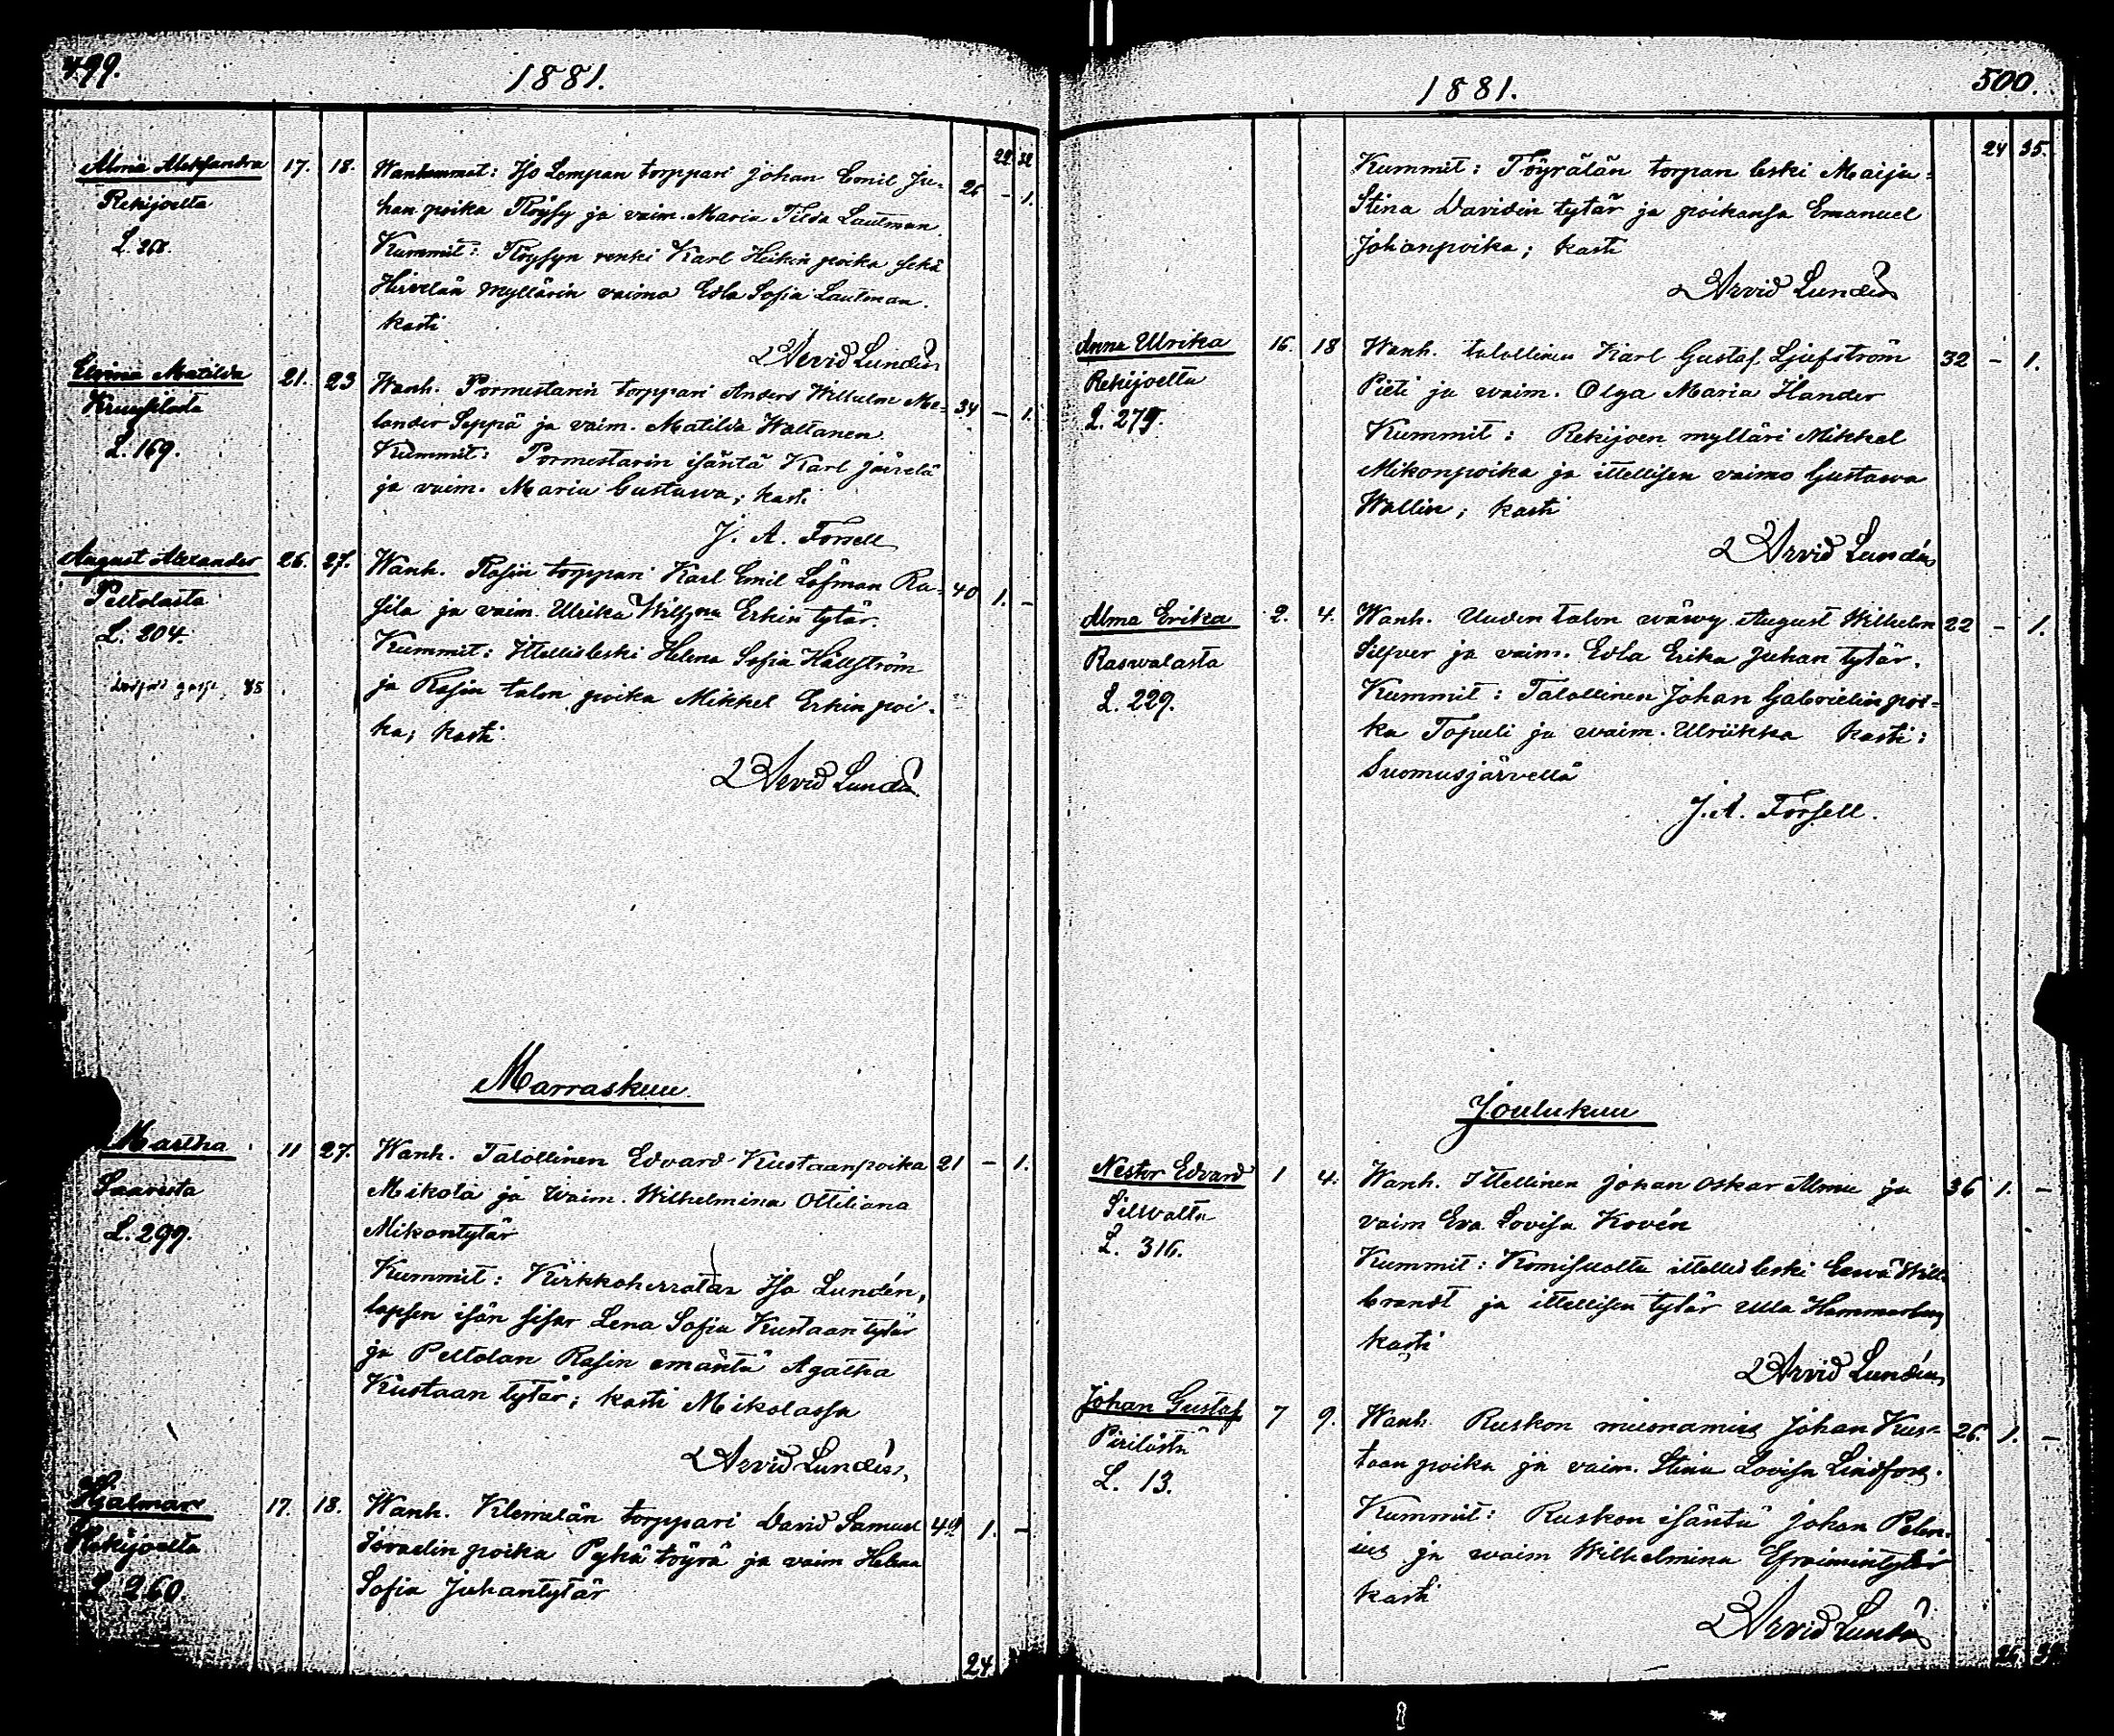 499.
1881.
22. 32
Alma Aleksandra 17. 18. Wanhemmat: Iso Lempan torppari Johan Emil Ju- 26 - 1.
Rekijoelta han poika Töysy ja vaim. Maria Tilda Lautman.
L. 268. Kummit: Töysyn renki Karl Heikin poika sekä
Hirvelän myllärin vaimo Edla Sofia Lautman.
kasti
Arvid Lundén
Elvina Matilda 21. 23 Wanh. Pormestarin torppari Anders Wilhelm Me- 34 - 1.
lander Seppä ja vaim. Matilda Waltanen.
L. 169. Kummit: Pormestarin isäntä Karl Järvelä
ja vaim. Maria Gustawa; kasti
J. A. Forsell
August Alexander 26. 27. Wanh. Rasin torppari Karl Emil Löfman Ra- 40 1. -
Peltolasta sila ja vaim. Ulrika Erkin tytär.
L. 204. Kummit: Ittellisleski Helena Sofia Källström
85 ja Rasin talon poika Mikkel Erkin poi-
ka; kasti
Arvid Lundén.
Marraskuu.
Martha 11 27. Wanh. Talollinen Edvard Kustaanpoika 21 - 1.
Saaresta Mikola ja waim. Wilhelmina Ottiliana
L. 299. Mikontytär
Kummit: Kirkkoherratar Isa Lundén,
lapsen isän sisar Lena Sofia Kustaan tytär
ja Peltolan Rasin emäntä Agatha
Kustaan tytär; kasti Mikolassa
Arvid Lundén,
Hjalmar 17. 18. Wanh. Klemelän torppari David Samuel 1. -
Rekijoelta Israelin poika Pyhä töyrä ja vaim Helena
L. 260. Sofia Juhantytär
24
500.
1881.
24 35.
Kummit: Töyrälän torpan leski Maija-
Stina Davidin tytär ja poikansa Emanuel
Johanpoika; kasti
Arvid Lundén
Anna Ulrika 16. 18 Wanh. talollinen Karl Gustaf Ljufström 32 - 1.
Rekijoelta Pieti ja waim. Olga Maria Hander
L. 279. Kummit: Rekijoen mylläri Mikkel
Mikonpoika ja ittellisen vaimo Gustawa
Wallin; kasti
Arvid Lundén
Alma Erika 2. 4. Wanh. Uuden talon wäwy August Wilhelm 22 - 1.
Raswalasta Silfver ja vaim. Edla Erika Juhan tytär.
L. 229. Kummit: Talollinen Johan Gabrielin poi-
ka Topuli ja waim. Ulriikka kasti:
Suomusjärvellä
J. A. Forsell.
Joulukuu
Nestor Edvard 1 4. Wanh. Ittellinen Johan Oskar Alma ja 36 1. -
Sillvalta vaim Eva Lovisa Kovén
L. 316. Kummit: Komisuolta ittellis leski Eewa Will-
brandt ja ittellisen tytär Ulla Hammarberg
kasti
Arvid Lundén
Johan Gustaf 7 9. Wanh. Ruskon muonamies Johan Kus- 26. 1. -
Pirilästä taan poika ja vaim. Stina Lovisa Lindfors.
L. 13. Kummit: Ruskon isäntä Johan
ja waim Wilhelmina Efraimintytär
kasti
Arvid Lundén